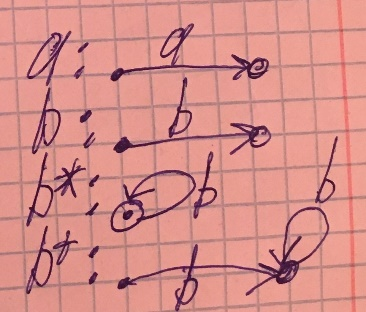 a: a
b: b
b*: b
b+: b b